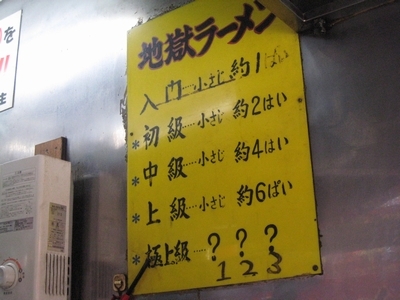 地獄ラーメン
入門……小さじ 約1ぱい
*初級……小さじ 約2はい
*中級……小さじ 約4はい
*上級……小さじ 約6ぱい
*極上級…? ? ?
1 2 3
を
主